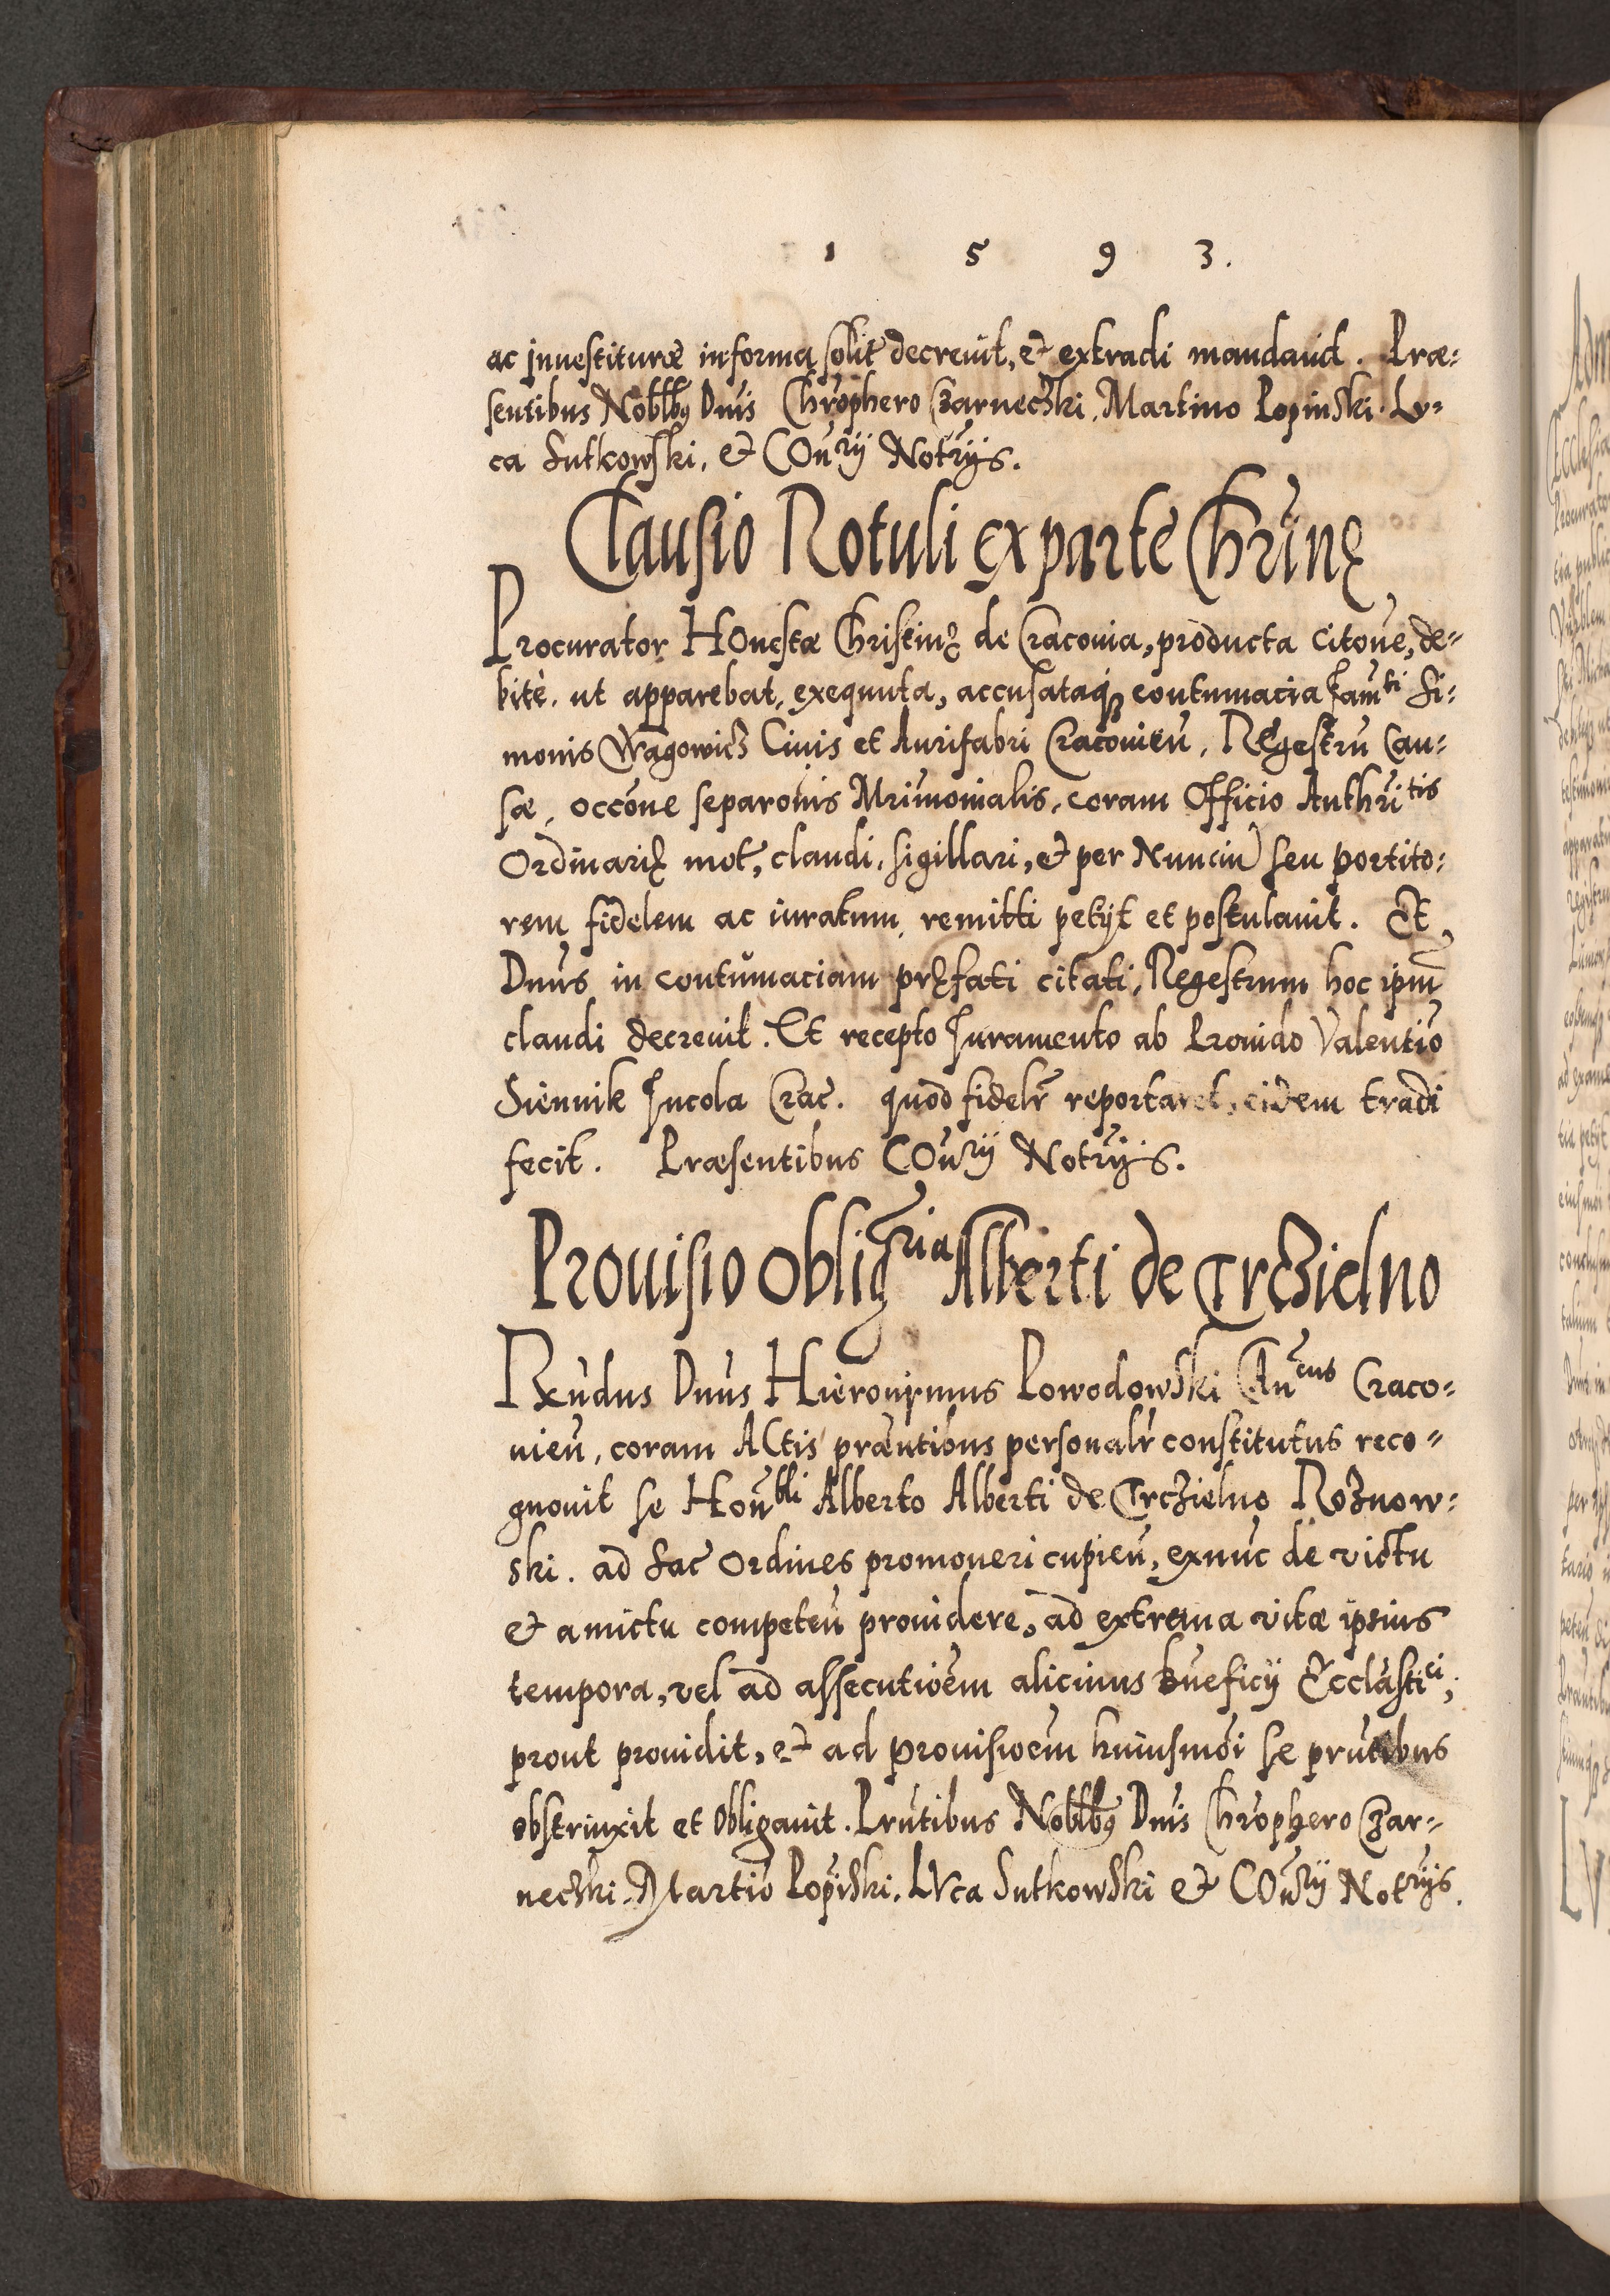 1 5 9 3.
ac jnuestiturę in forma solit̃ decreuit, et extradi mandauit. Præ=
sentibus Noblbꝯ Dnis Chrõphero Czarneczki, Martino Lopinski. Lu=
ca Sutkowski, et COnr̃ij Notr̃ijs.
Clausio Rotuli ex parte Chrinę
Procurator HOnestæ Christinę de Cracouia, producta citone, de=
bitè, ut apparebat, exequuta, accusataqꝫ contumacia Famti Si=
monis Wągowicz Ciuis et Aurifabri Cracouien̄, Regestrũ Cau=
sæ, occõne separoñis Mr̃imonialis, coram Officio Authr̃itis
Ordinarię mot̃, claudi, sigillari, et per Nunciũ seu portito=
rem fidelem ac iuratum, remitti petijt et postulauit. Et
Dnũs in contumaciam pręfati citati, Regestrum hoc ipm̃
claudi decreuit. Et recepto Juramento ab Prouido Valentiõ
Siennik Jncola Crac̃. quod fidelr̃ reportaret, eidem tradi
fecit. Præsentibus COnr̃ij Notr̃ijs.
Prouisio obligria Alberti de Trczielno
Rxũdus Dnũs Hieronÿmus Powodowski Cãncus Craco=
uieñ, coram ACtis præñtibus personalr̃ constitutus reco=
gnouit se Hoñbli Alberto Alberti de Trczielno Roznow=
ski. ad Sac̃ Ordines promoueri cupieñ, exnũc de victu
et amictu competeñ prouidere, ad extrema vitæ ipsius
tempora, vel ad assecutioẽm alicuius bñeficij Ecclãstici,
prout prouidit, et ad prouisioẽm huiusmõi se prñtibus
obstrinxit et obligauit. Prñtibus Noblbꝯ Dnis Chrõphero Czar=
neczki. Martiõ Lopiñski. LVca Sutkowski et COnr̃ij Notr̃ijs.